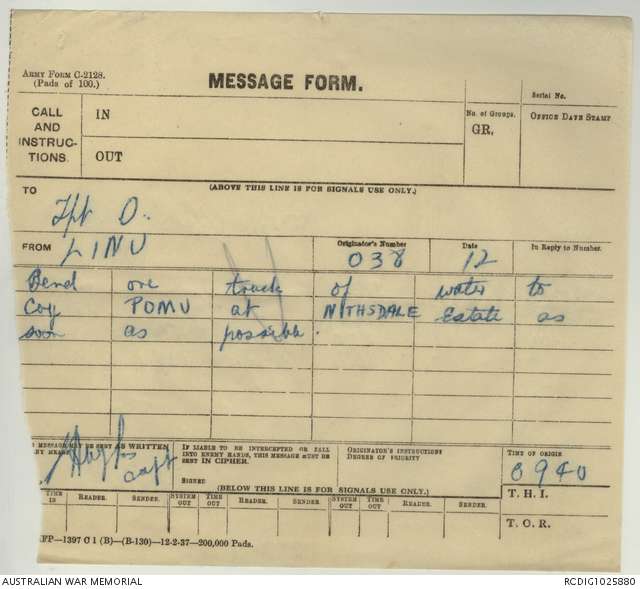 ARMY FORM C-2128.
(Pads of 100.)
MESSAGE FORM.
Serial No.
CALL AND INSTRUCTIONS.
IN
OUT
No. of Groups.
GR.
OFFICE DATE STAMP
(ABOVE THIS LINE IS FOR SIGNALS USE ONLY.)
TO
Tpt O.
FROM LINU
Originator's Number
038
Date
12
In Reply to Number.
Send one truck of water to
Coy POMU at NITHSDALE Estate as
soon as possible.
MESSAGE MAY BE SENT AS WRITTEN
ANY MEANS
Capt
IF LIABLE TO BE INTERCEPTED OR FALL
INTO ENEMY HANDS, THIS MESSAGE MUST BE
SENT IN CIPHER.
SIGNED
ORIGINATOR'S INSTRUCTIONS
DEGREE OF PRIORITY
TIME OF ORIGIN
0940
(BELOW THIS LINE IS FOR SIGNALS USE ONLY.)
T. H. I.
T. O. R.
TIME IN READER. SENDER. SYSTEM OUT TIME OUT READER. SENDER. SYSTEM OUT TIME OUT READER. SENDER.
AFP—1397 C 1 (B)—(B-130)—12-2-37—200,000 Pads.
AUSTRALIAN WAR MEMORIAL
RCDIG1025880